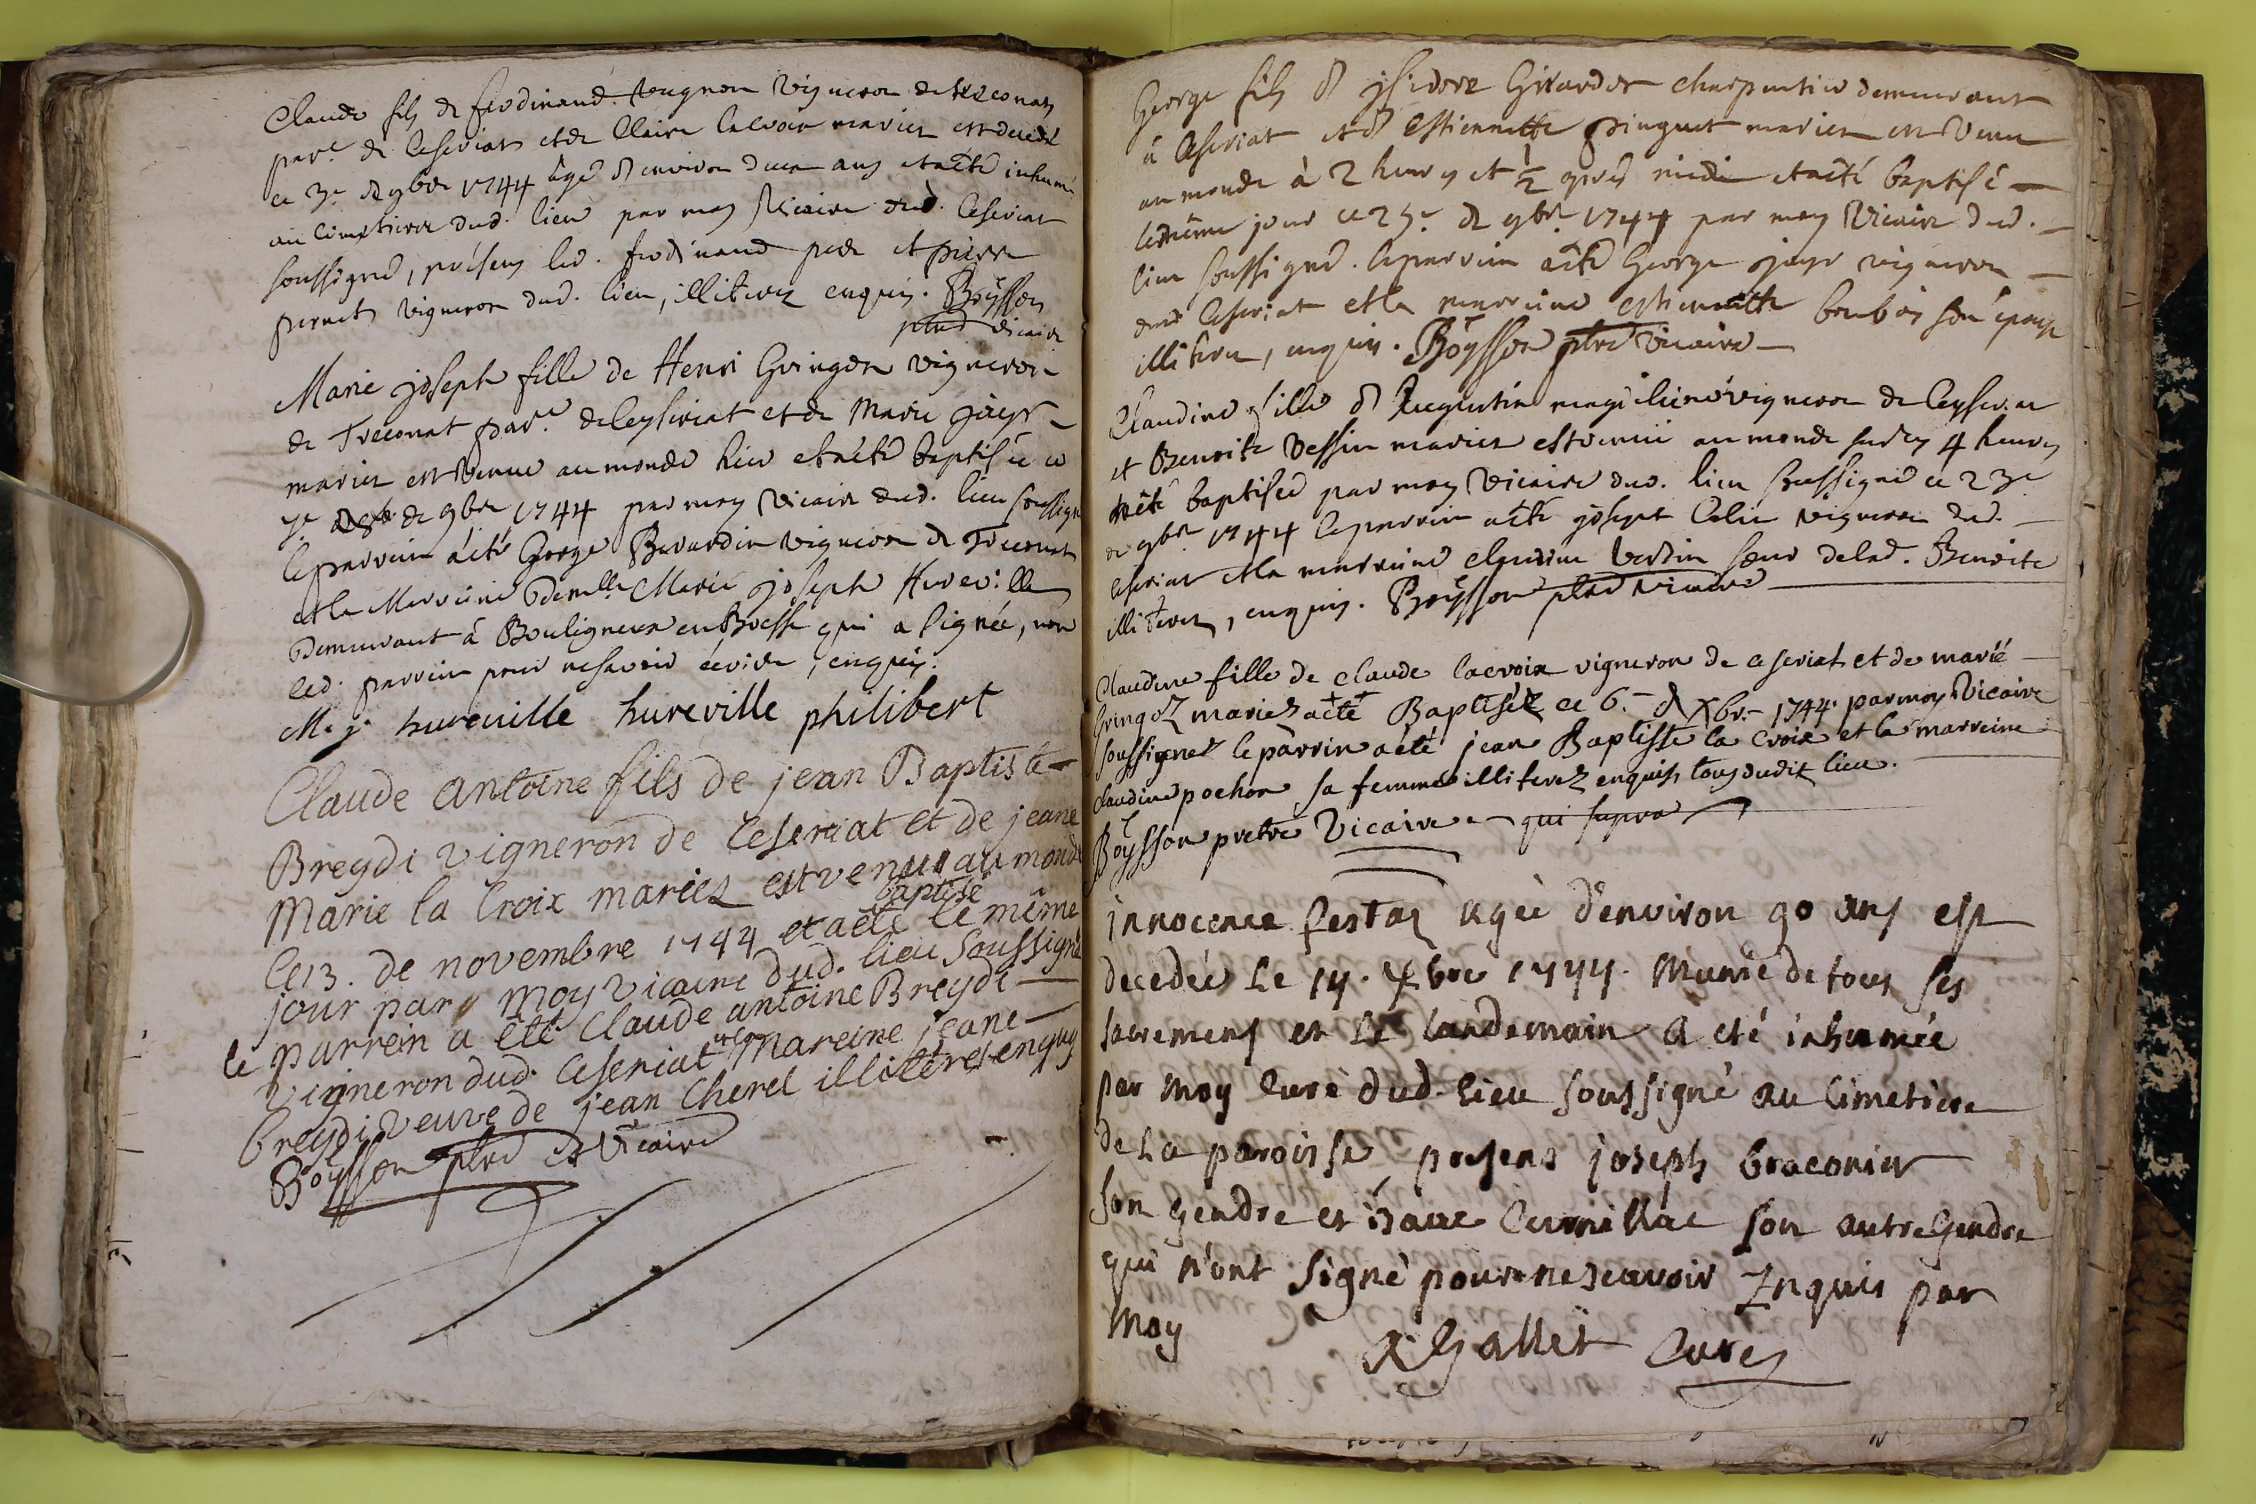 Claude fils de ferdinand vuignon vigneron de treconas
par.e de Ceseriat et de Claire Lacroix mariez est decedé
ce 3.e de 9bre 1744 âgé d'environ deux ans et a été inhumé
au cimetiere dud. lieu par moy vicaire dud. Ceseriat
soussigné, présens led. ferdinand pere et pierre
pernet vigneron dud. lieu, illiterez enquis. Boÿsson
ptre vicaire
Marie joseph fille de Henri Gringoz vigneron
de Treconat par.e de Ceyseriat et de Marie jayr
mariez est venue au monde hier et a été baptisée ce
7.e de 9bre 1744 par moy vicaire dud. lieu soussigné
le parrein a été George Bavardin vigneron de Treconat
et la Marreine Demlle Marie joseph Hureville
demeurant à Bouligneux en Bresse qui a signée, non
led. parrein pour ne savoir écrire, enquis.
M. j. hureville hureville philibert
Claude antoine fils de jean Baptiste
Breydi vigneron de Ceseriat et de jeane
Marie la Croix mariez est venu au monde
le 13. de novembre 1744 et a été baptisé le même
jour par moy vicaire dud. lieu soussigné
le parrein a été Claude antoine Breydi
vigneron dud. Ceseriat et la Mareine jeane
breydi veuve de jean Cherel illiterés enquis
Boÿsson ptre et vicaire
George fils d' ysidore Girardet charpentier demeurant
à Ceseriat et d' Estiennette pinguet mariez est venu
au monde à 2 heures et 1/2 après midi et a été baptisé
le même jour ce 23.e de 9bre 1744 par moy vicaire dud.
lieu soussigné. le parrein a été George jayr vigneron
dud Ceseriat et la marreine estiennette bonbois son épouse
illiterez, enquis. Boÿsson ptre vicaire
Claudine fille d' Augustin vigneron de Ceyseriat
et Benoite Vessin mariez est venüe au monde sur les 4 heures
a été baptisée par moy vicaire dud. lieu soussigné ce 23.e
de 9bre 1744 le parrein a été joseph Colin vigneron dud.
Ceseriat et la marreine Claudine Vessin sœur de lad. Benoite
illiterez, enquis. Boÿsson ptre vicaire
Claudine fille de Claude lacroix vigneron de ceseriat et de marie
Gringoz mariez a été Baptisée ce 6.e de Xbre 1744. par moy vicaire
soussigné le parrin a été jean Baptiste la Croix et la marreine
claudine pochon sa femme illiterez enquis tous dudit lieu.
Boÿsson pretre vicaire qui supra
innocence festaz agèe d'environ 90 ans est
decedée le 14. Xbre 1744. Munie de tous ses
sacremens et le landemain a été inhumée
par moy Curé dud. lieu soussigné au Cimetiere
de La paroisse, presens joseph braconier
son gendre et isaac Curnillac son autre Gendre
qui n'ont signé pour ne scavoir Enquis par
Moy
Gallet Curé